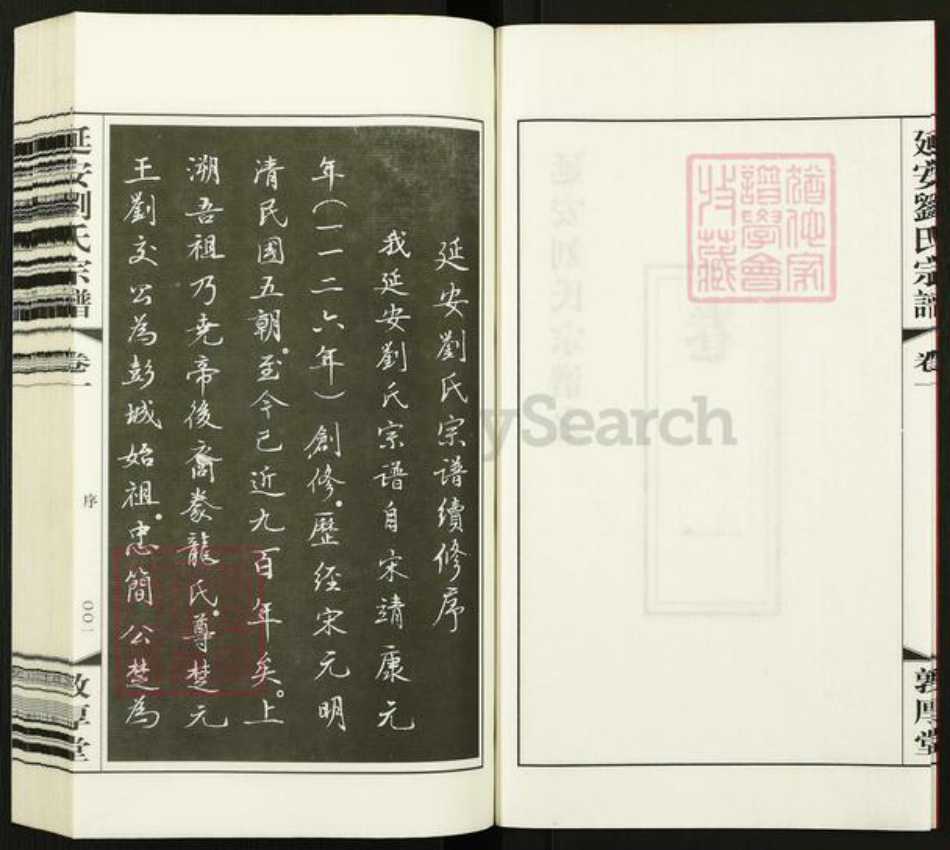 延安劉氏宗譜
卷一
敦厚堂
猶他家
譜學會
收藏
延安刘氏宗谱
卷一
MySearch
延安劉氏宗譜續修序
我延安劉氏宗谱自宋靖康元
年(一一二六年)創修。歷经宋元明
清民國五朝。至今已近九百年矣。上
溯吾祖乃堯帝後裔豢龍氏。尊楚元
王劉交公為彭城始祖。忠簡公楚為
延安劉氏宗譜
卷一
序
〇〇一
敦厚堂